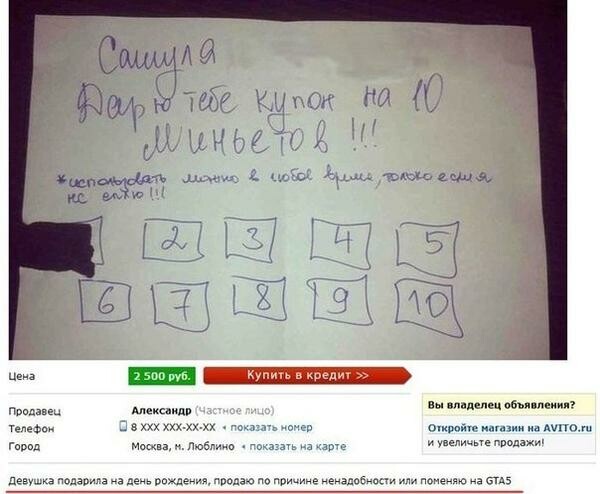 Сашуля
Дарю тебе купон на 10
Миньетов!!!
*использовать можно в любое время, только если я
не сплю!!!
2 3 4 5
6 7 8 9 10
Цена 2 500 руб. Купить в кредит >>
Продавец Александр (Частное лицо)
Телефон 8 XXX XXX-XX-XX показать номер
Город Москва, м. Люблино показать на карте
Вы владелец объявления?
Откройте магазин на AVITO.ru
и увеличьте продажи!
Девушка подарила на день рождения, продаю по причине ненадобности или поменяю на GTA5